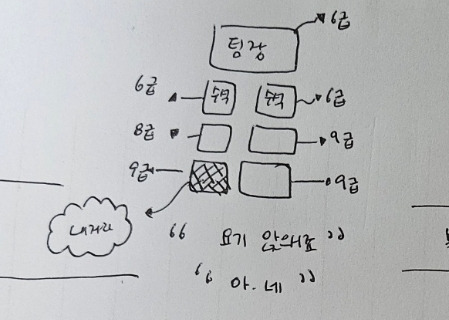 6급
팀장
6급 수석 수석 6급
8급 9급
9급 9급
내자리
“ 여기 앉으세요 ”
“ 아. 네 ”